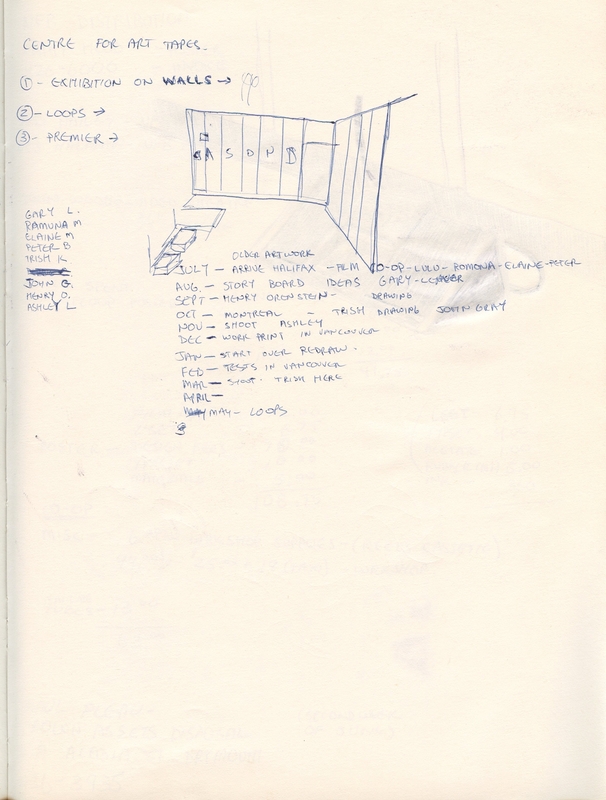 CENTRE FOR ART TAPES.
① - EXHIBITION ON WALLS →
② - LOOPS →
③ - PREMIER →
A S O N D
GARY L.
RAMUNA M
ELAINE M
PETER B
TRISH K
JOHN G.
HENRY O.
ASHLEY L
OLDER ARTWORK
JULY - ARRIVE HALIFAX - FILM CO-OP - LULU - ROMONA - ELAINE - PETER
AUG. - STORY BOARD IDEAS GARY -
SEPT - HENRY ORENSTEIN - DRAWING
OCT - MONTREAL - TRISH DRAWING JOHN GRAY
NOV - SHOOT ASHLEY
DEC - WORK PRINT IN VANCOUVER
JAN - START OVER REDRAW.
FEB - TESTS IN VANCOUVER
MAR - SHOOT. TRISH HERE
APRIL -
MAY - LOOPS